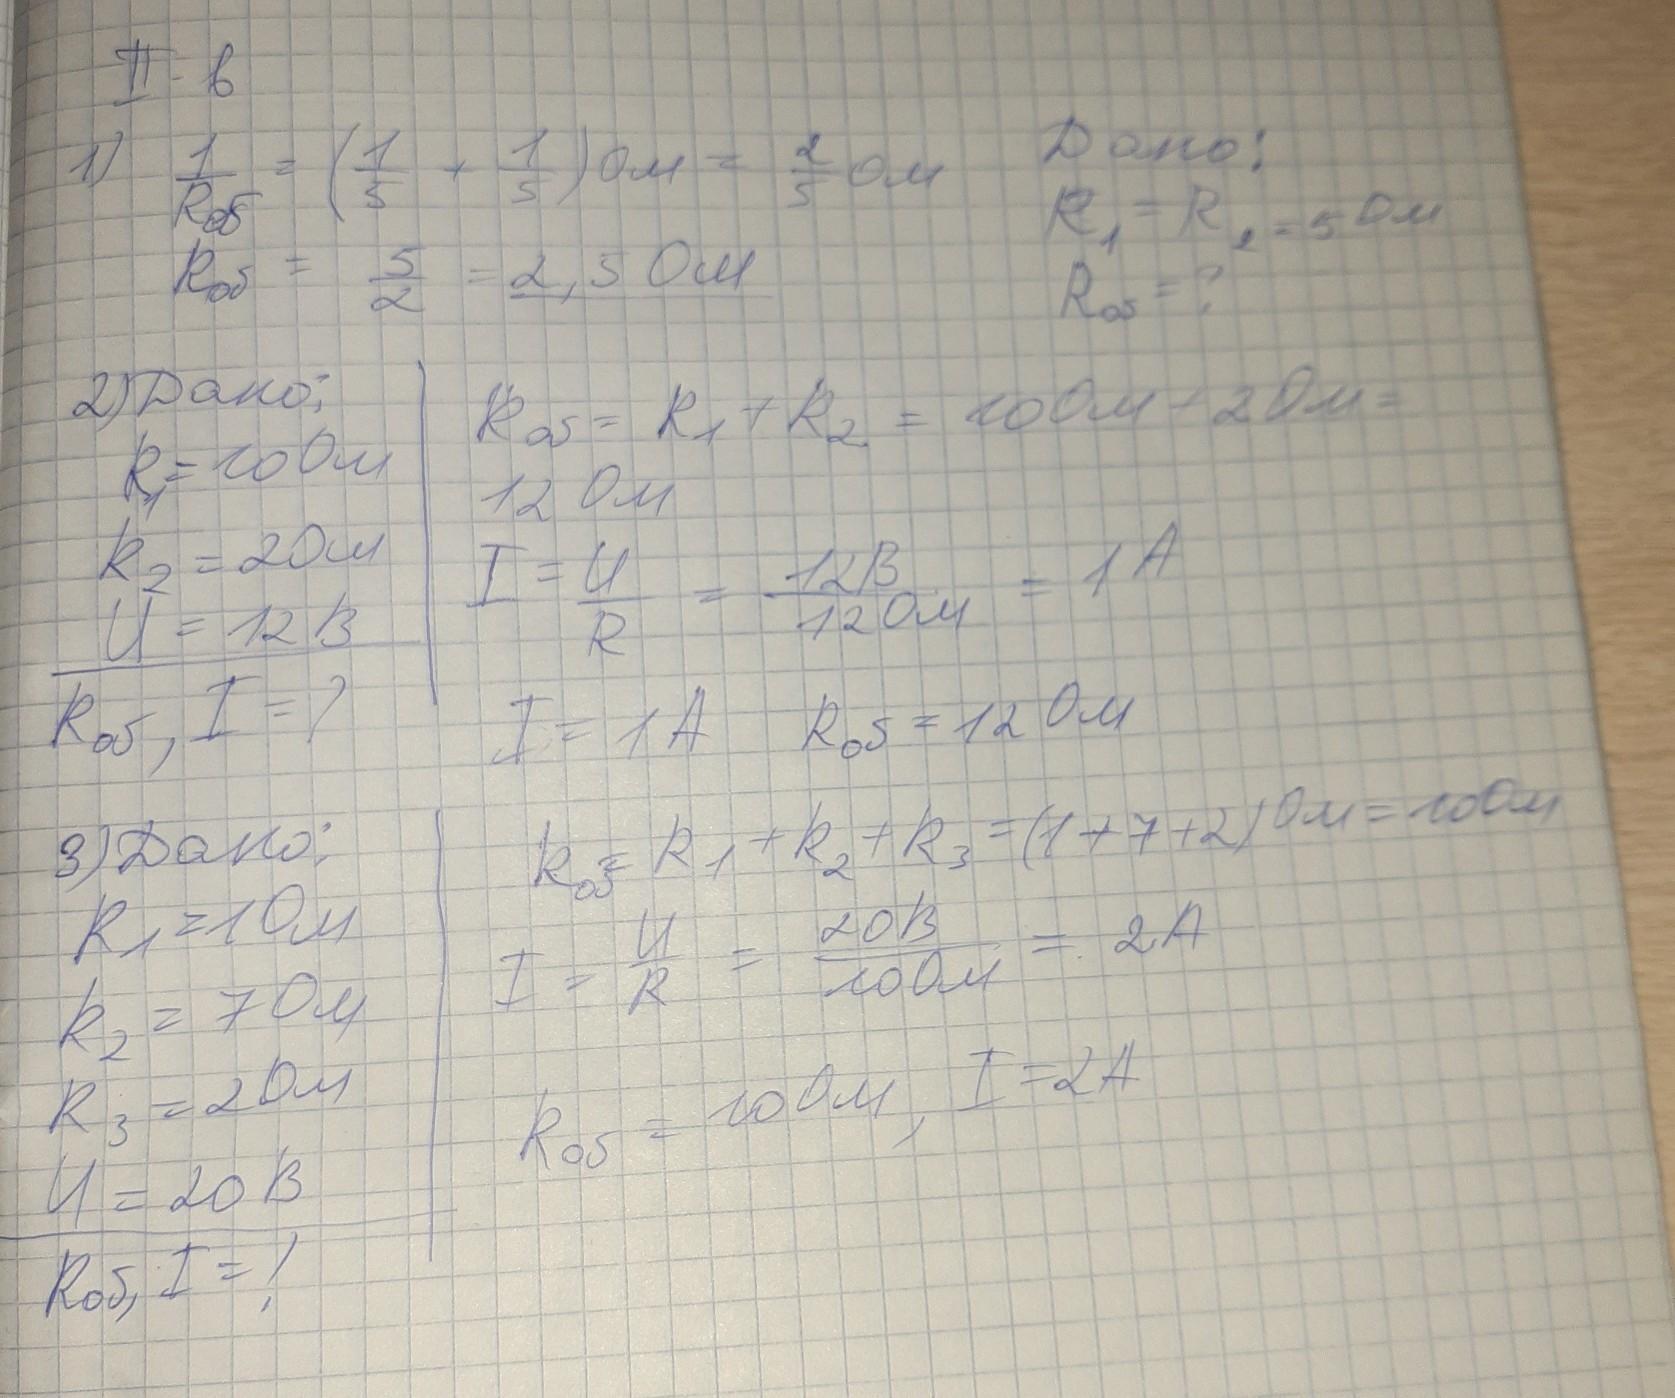 II - в
1) 1/Rоб = (1/5 + 1/5) Ом = 2/5 Ом
Rоб = 5/2 = 2,5 Ом
Дано:
R1 = R2 = 5 Ом
Rоб = ?
2) Дано:
R1 = 10 Ом
R2 = 2 Ом
U = 12 В
Rоб, I = ?
Rоб = R1 + R2 = 10 Ом + 2 Ом =
12 Ом
I = U/R = 12 В/12 Ом = 1 А
I = 1 А Rоб = 12 Ом
3) Дано:
R1 = 1 Ом
R2 = 7 Ом
R3 = 2 Ом
U = 20 В
Rоб, I = ?
Rоб = R1 + R2 + R3 = (1 + 7 + 2) Ом = 10 Ом
I = U/R = 20 В/10 Ом = 2 А
Rоб = 10 Ом, I = 2 А